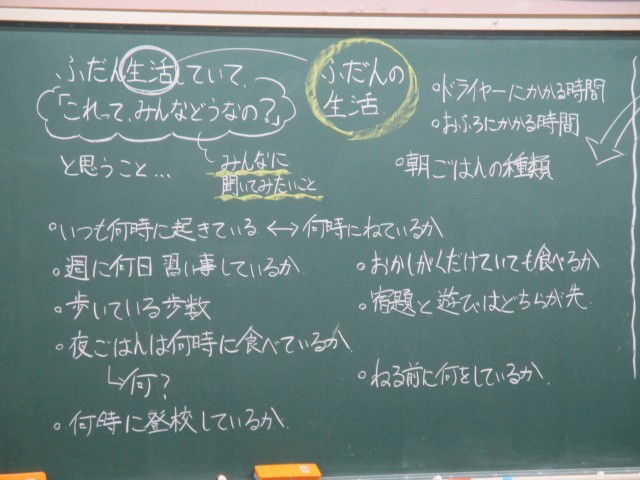 ふだん生活していて、
「これって、みんなどうなの?」
と思うこと…
みんなに
聞いてみたいこと
ふだんの
生活
・ドライヤーにかかる時間
・おふろにかかる時間
・朝ごはんの種類
・いつも何時に起きている ↔ 何時にねているか
・週に何日 習い事しているか
・歩いている歩数
・夜ごはんは何時に食べているか
↳何?
・何時に登校しているか
・おかしがくだけていても食べるか
・宿題と遊びはどちらが先
・ねる前に何をしているか